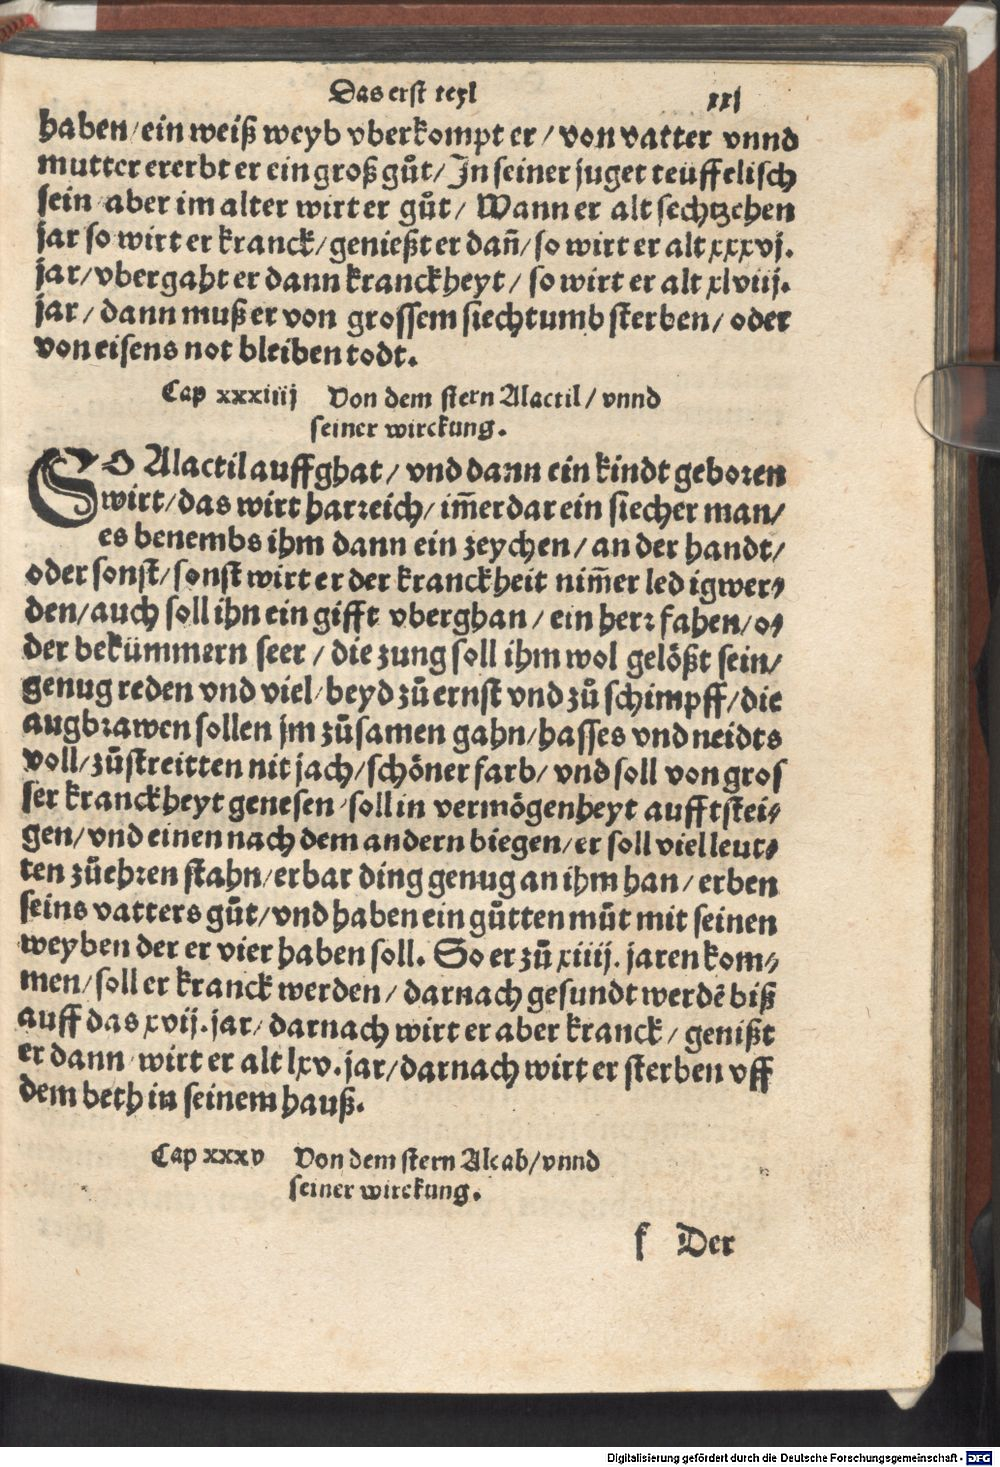 Das erst teyl xxj
haben/ein weiß weyb vberkompt er/von vatter vnnd
mutter ererbt er ein groß gůt/In seiner juget teuffelisch
sein/aber im alter wirt er gůt/Wann er alt sechtzehen
jar so wirt er kranck/genießt er dañ/so wirt er alt xxxvj.
jar/vbergaht er dann kranckheyt/so wirt er alt xlviij.
jar/dann muß er von grossem siechtumb sterben/oder
von eisens not bleiben todt.
Cap xxxiiij Von dem stern Alactil/vnnd
seiner wirckung.
SO Alactil auffghat/vnd dann ein kindt geboren
wirt/das wirt harreich/im̃erdar ein siecher man/
es benembs ihm dann ein zeychen/an der handt/
oder sonst/sonst wirt er der kranckheit nim̃er led igwer⸗
den/auch soll ihn ein gifft vberghan/ein herr fahen/o⸗
der bekümmern seer/die zung soll ihm wol gelößt sein/
genug reden vnd viel/beyd zů ernst vnd zů schimpff/die
augbrawen sollen jm zůsamen gahn/hasses vnd neidts
voll/zůstreitten nit jach/schöner farb/vnd soll von gros
ser kranckheyt genesen/soll in vermögenheyt aufftstei⸗
gen/vnd einen nach dem andern biegen/er soll viel leut⸗
ten zů ehren stahn/erbar ding genug an ihm han/erben
seins vatters gůt/vnd haben ein gůtten můt mit seinen
weyben der er vier haben soll. So er zů xiiij. jaren kom⸗
men/soll er kranck werden/darnach gesundt werdẽ biß
auff das xvij. jar/darnach wirt er aber kranck/genißt
er dann/wirt er alt lxv. jar/darnach wirt er sterben vff
dem beth in seinem hauß.
Cap xxxv Von dem stern Alcab/vnnd
seiner wirckung.
f Der
Digitalisierung gefördert durch die Deutsche Forschungsgemeinschaft - DFG